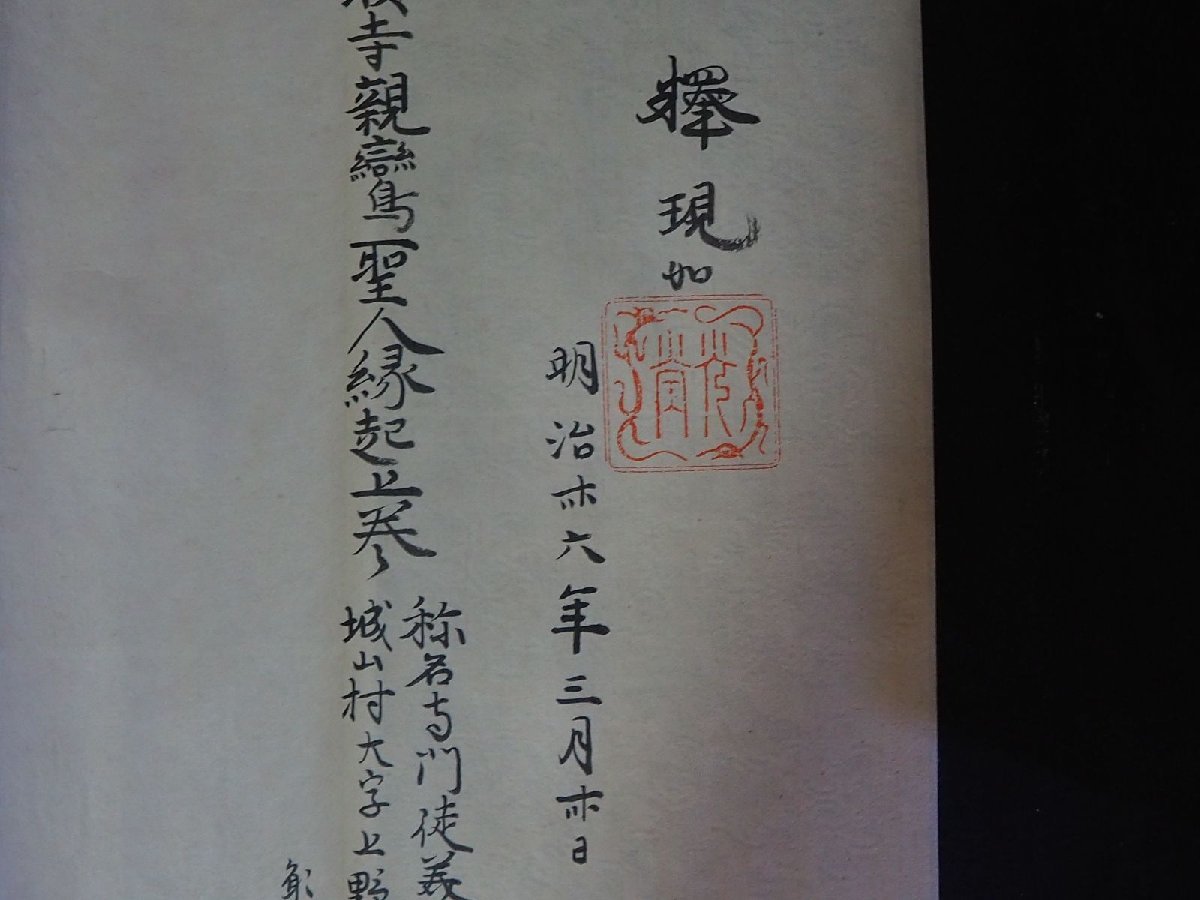 釋現如
明治卅六年三月卅日
寺親鸞聖人縁起上巻
称名寺門徒美
城山村大字上野